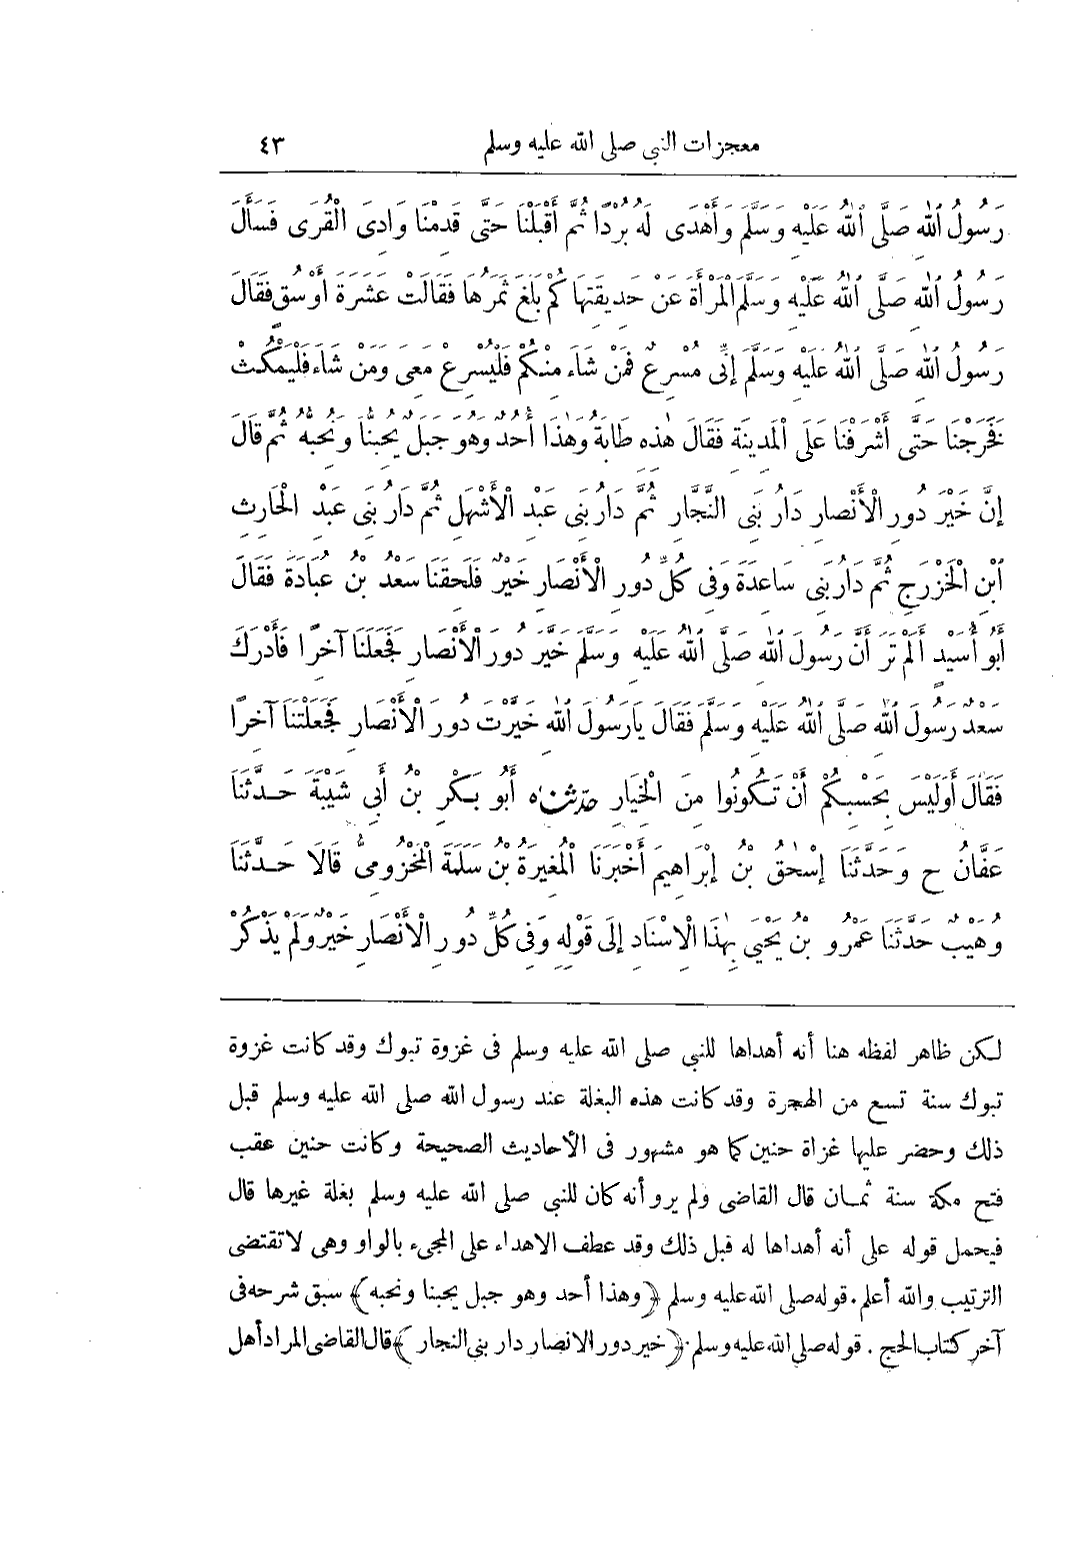 معجزات النبي صلى الله عليه وسلم ٤٣
رَسُولُ اللهِ صَلَّى اللهُ عَلَيْهِ وَسَلَّمَ وَأَهْدَى لَهُ بُرْدًا ثُمَّ أَقْبَلْنَا حَتَّى قَدِمْنَا وَادِيَ الْقُرَى فَسَأَلَ
رَسُولُ اللهِ صَلَّى اللهُ عَلَيْهِ وَسَلَّمَ الْمَرْأَةَ عَنْ حَدِيقَتِهَا كَمْ بَلَغَ ثَمَرُهَا فَقَالَتْ عَشَرَةَ أَوْسُقٍ فَقَالَ
رَسُولُ اللهِ صَلَّى اللهُ عَلَيْهِ وَسَلَّمَ إِنِّى مُسْرِعٌ فَمَنْ شَاءَ مِنْكُمْ فَلْيُسْرِعْ مَعِىَ وَمَنْ شَاءَ فَلْيَمْكُثْ
فَخَرَجْنَا حَتَّى أَشْرَفْنَا عَلَى الْمَدِينَةِ فَقَالَ هٰذِهِ طَابَةُ وَهٰذَا أُحُدٌ وَهُوَ جَبَلٌ يُحِبُّنَا وَنُحِبُّهُ ثُمَّ قَالَ
إِنَّ خَيْرَ دُورِ الْأَنْصَارِ دَارُ بَنِى النَّجَّارِ ثُمَّ دَارُ بَنِى عَبْدِ الْأَشْهَلِ ثُمَّ دَارُ بَنِى عَبْدِ الْحَارِثِ
ابْنِ الْخَزْرَجِ ثُمَّ دَارُ بَنِى سَاعِدَةَ وَفِى كُلِّ دُورِ الْأَنْصَارِ خَيْرٌ فَلَحِقَنَا سَعْدُ بْنُ عُبَادَةَ فَقَالَ
أَبُو أُسَيْدٍ أَلَمْ تَرَ أَنَّ رَسُولَ اللهِ صَلَّى اللهُ عَلَيْهِ وَسَلَّمَ خَيَّرَ دُورَ الْأَنْصَارِ فَجَعَلَنَا آخِرًا فَأَدْرَكَ
سَعْدٌ رَسُولَ اللهِ صَلَّى اللهُ عَلَيْهِ وَسَلَّمَ فَقَالَ يَارَسُولَ اللهِ خَيَّرْتَ دُورَ الْأَنْصَارِ فَجَعَلْتَنَا آخِرًا
فَقَالَ أَوَلَيْسَ بِحَسْبِكُمْ أَنْ تَكُونُوا مِنَ الْخِيَارِ حَدَّثَنَاهُ أَبُو بَكْرِ بْنُ أَبِي شَيْبَةَ حَدَّثَنَا
عَفَّانُ ح وَحَدَّثَنَا إِسْحٰقُ بْنُ إِبْرَاهِيمَ أَخْبَرَنَا الْمُغِيرَةُ بْنُ سَلَمَةَ الْمَخْزُومِىُّ قَالَا حَدَّثَنَا
وُهَيْبٌ حَدَّثَنَا عَمْرُو بْنُ يَحْيَى بِهٰذَا الْإِسْنَادِ إِلَى قَوْلِهِ وَفِى كُلِّ دُورِ الْأَنْصَارِ خَيْرٌ وَلَمْ يَذْكُرْ
لكن ظاهر لفظه هنا أنه أهداها للنبي صلى الله عليه وسلم فى غزوة تبوك وقد كانت غزوة
تبوك سنة تسع من الهجرة وقد كانت هذه البغلة عند رسول الله صلى الله عليه وسلم قبل
ذلك وحضر عليها غزاة حنين كما هو مشهور فى الأحاديث الصحيحة وكانت حنين عقب
فتح مكة سنة ثمان قال القاضى ولم يرو أنه كان للنبي صلى الله عليه وسلم بغلة غيرها قال
فيحمل قوله على أنه أهداها له قبل ذلك وقد عطف الاهداء على المجىء بالواو وهى لا تقتضى
الترتيب والله أعلم. قوله صلى الله عليه وسلم ﴿وهذا أحد وهو جبل يحبنا ونحبه﴾ سبق شرحه فى
آخر كتاب الحج. قوله صلى الله عليه وسلم ﴿خير دور الانصار دار بنى النجار﴾ قال القاضى المراد أهل